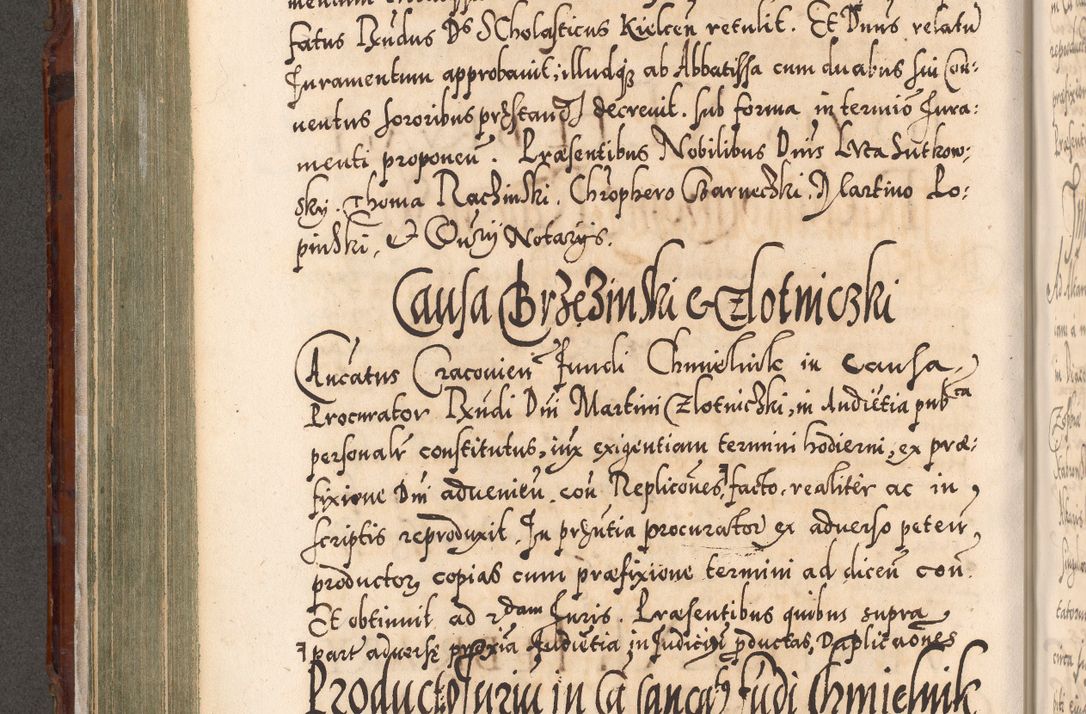 fatus Rndus Ds SCholasticus Kielcen retulit. Et Dnus relatu
Juramentum approbavit, illudq3 ab Abbatissa cum duabus sui Con:
ventus sororibus pręstandum decrevit. sub forma in termio Jura:
menti proponen. Præsentibus Nobilibus Dnis Luca Sutkow:
sky. Thoma Raczinski. Chrophero Czarneczki. Martino Lo:
pinski, et Curij Notarijs.
Causa Brzęzinski & Zlotniczki
Ancatus Cracovien fundi Chmielnik in causa
Procurator Rndi Dni Martini Zlotniczki, in Audietia pubca
personalr constitutus, iux exigentiam termini hodierni, ex præ:
fixione Dni advenien. con Replicones, facto, realiter ac in
scriptis reproduxit. In prnutia procurator ex adverso peten
productor copias cum præfixione termini ad dicen con.
Et obtinuit ad 2dam Juris. Præsentibus quibus supra
part adversę Audietia in Judiciu pductas, Duplicaones
Producto in Ca sancati fudi Chmielnik